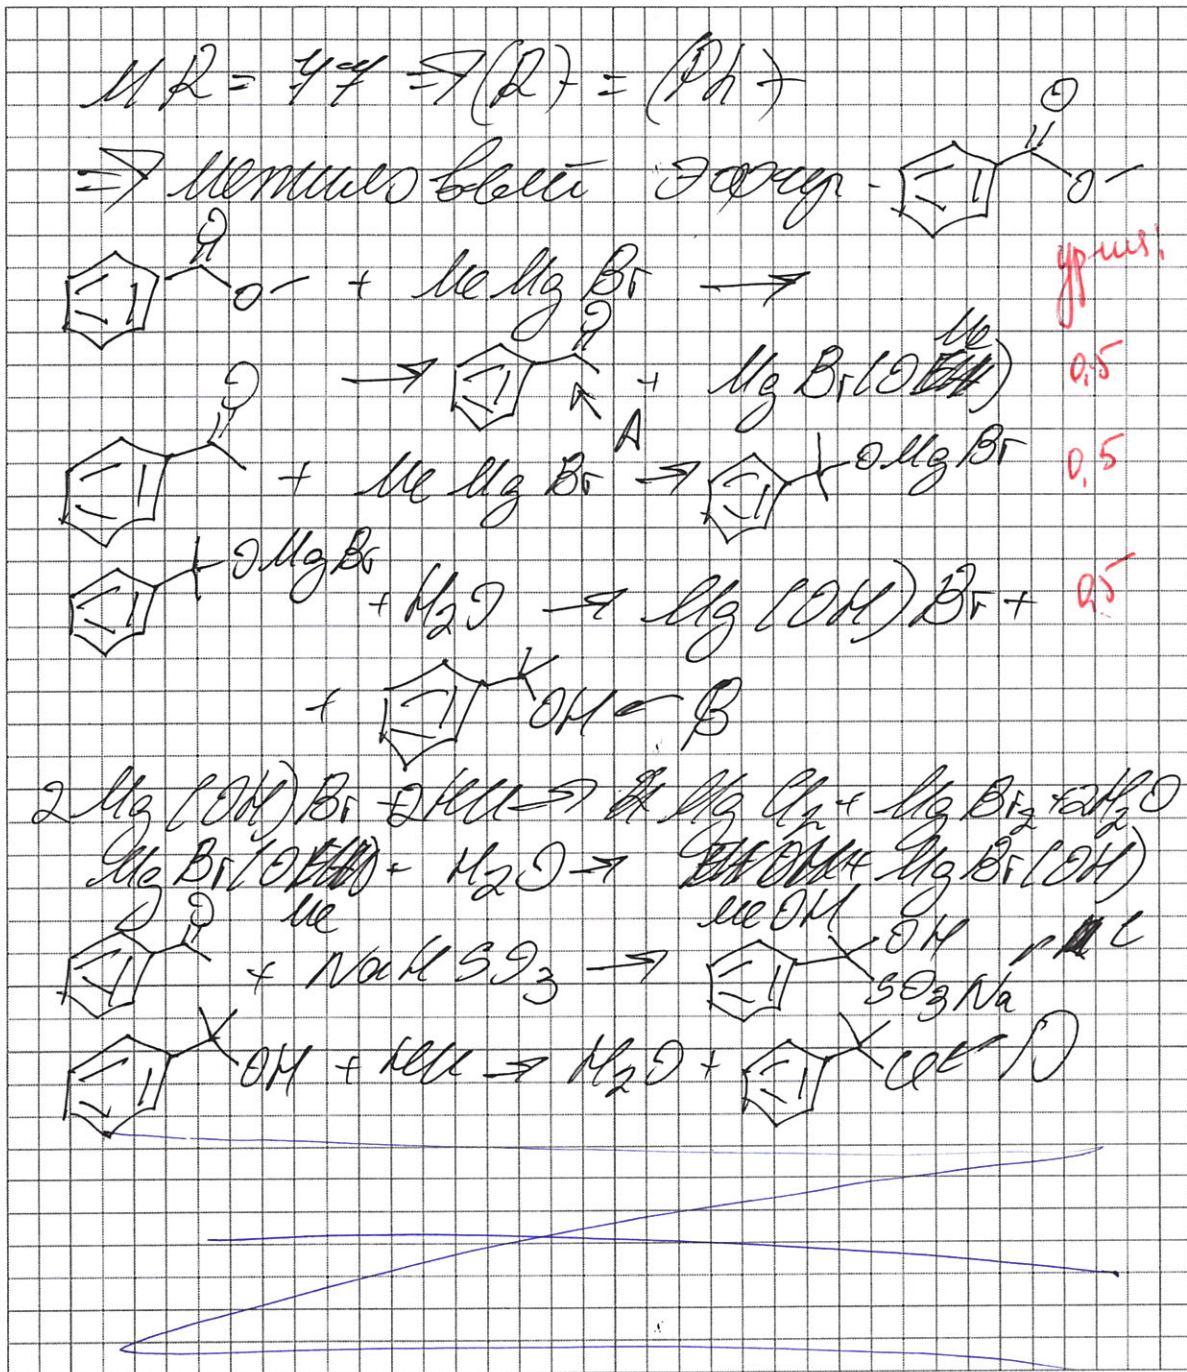 MR = 77 ⇒ (R) = (Ph)
⇒ метиловый эфир - O O
O O + MeMgBr → ур-ия:
O → O A + MgBr(OMe) 0,5
+ MeMgBr → OMgBr 0,5
OMgBr + H2O → Mg(OH)Br + 0,5
+ OH ← B
2Mg(OH)Br + 2HCl → MgCl2 + MgBr2 + 2H2O
MgBr(OMe) + H2O → MeOH + MgBr(OH)
O + NaHSO3 → OH SO3Na C
OH + HCl → H2O + Cl ← D